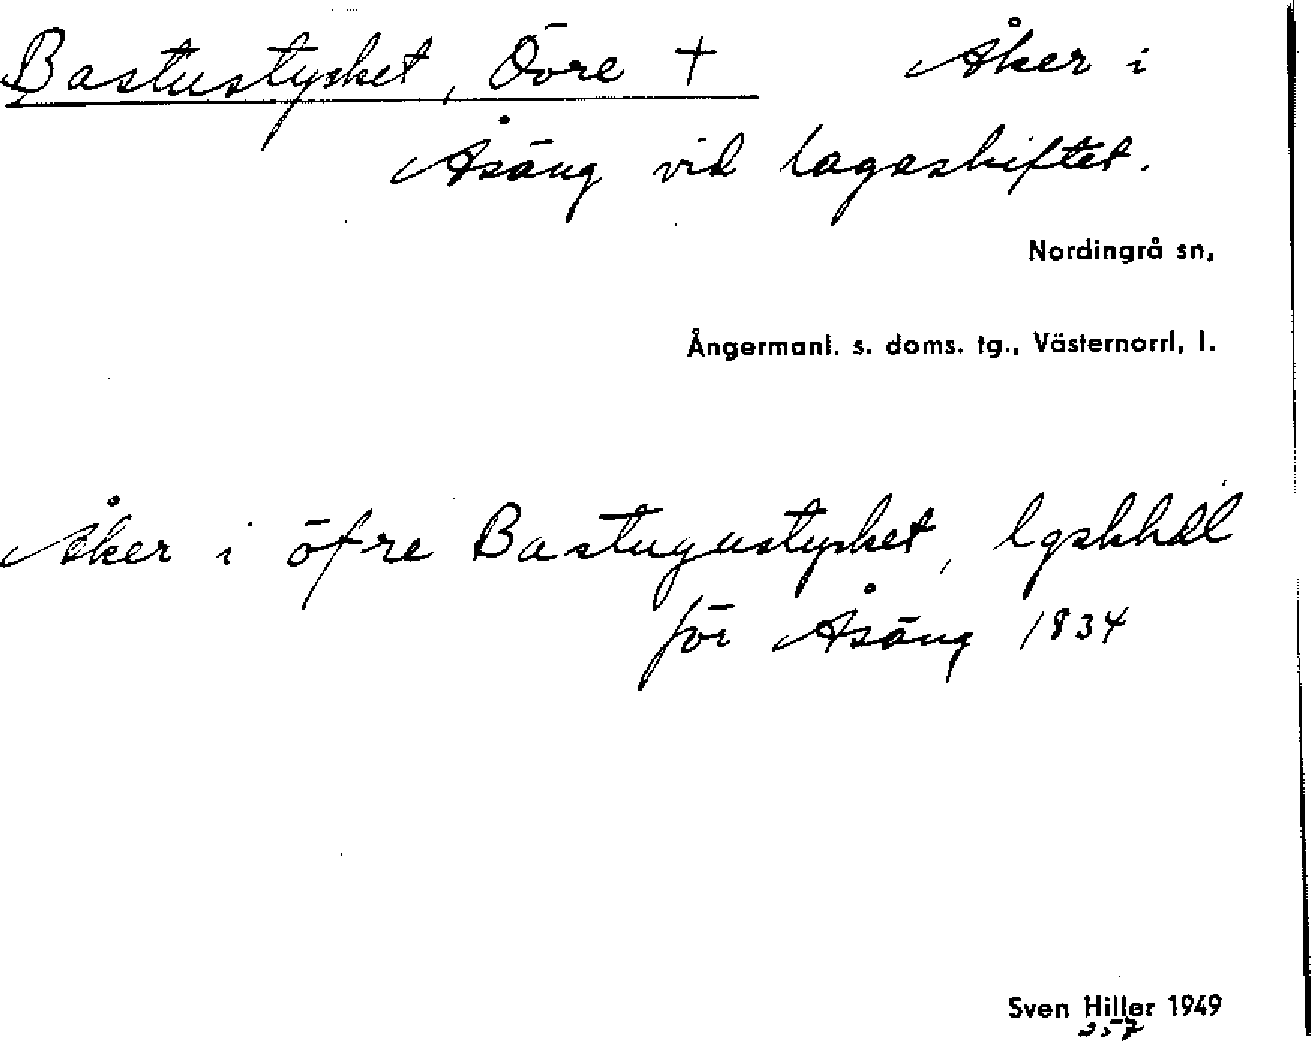 Bastustycket, Övre + Åker i
Åsäng vid lagaskiftet.
Nordingrå sn,
Ångermanl. s. doms. tg., Västernorrl, l.
Åker i öfre Bastugustycket, lgskhdl
för Åsäng 1834
Sven Hiller 1949
257